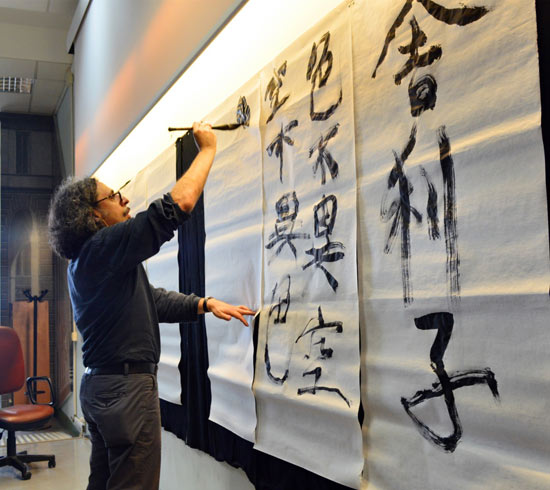 舍利子
色不異空
空不異色